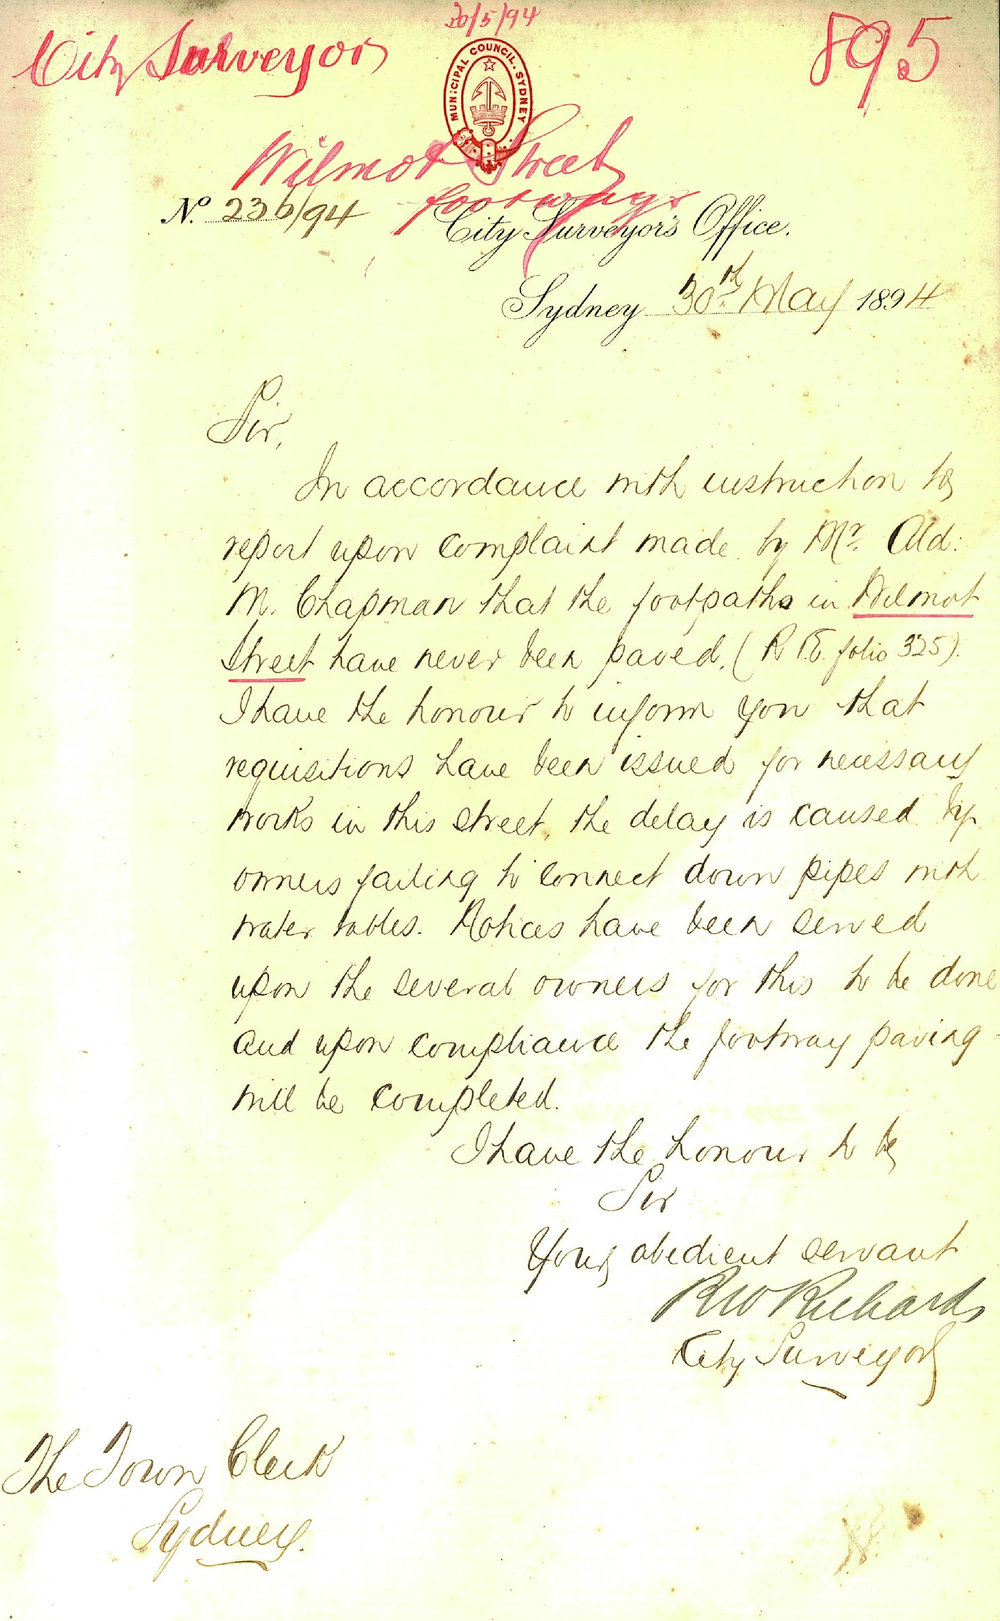 30/5/94
City Surveyor
895
MUNICIPAL COUNCIL. SYDNEY
Wilmot Street
footways
No. 236/94
City Surveyor's Office.
Sydney 30th May 1894
Sir,
In accordance with instruction to
report upon complaint made by Mr. Ald:
M. Chapman that the footpaths in Wilmot
Street have never been paved. (R B. folio 325).
I have the honour to inform you that
requisitions have been issued for necessary
works in this street, the delay is caused by
owners failing to connect down pipes with
water tables. Notices have been served
upon the several owners for this to be done
and upon compliance the footway paving
will be completed.
I have the honour to be
Sir
Your obedient servant
R W Richards
City Surveyor
The Town Clerk
Sydney.